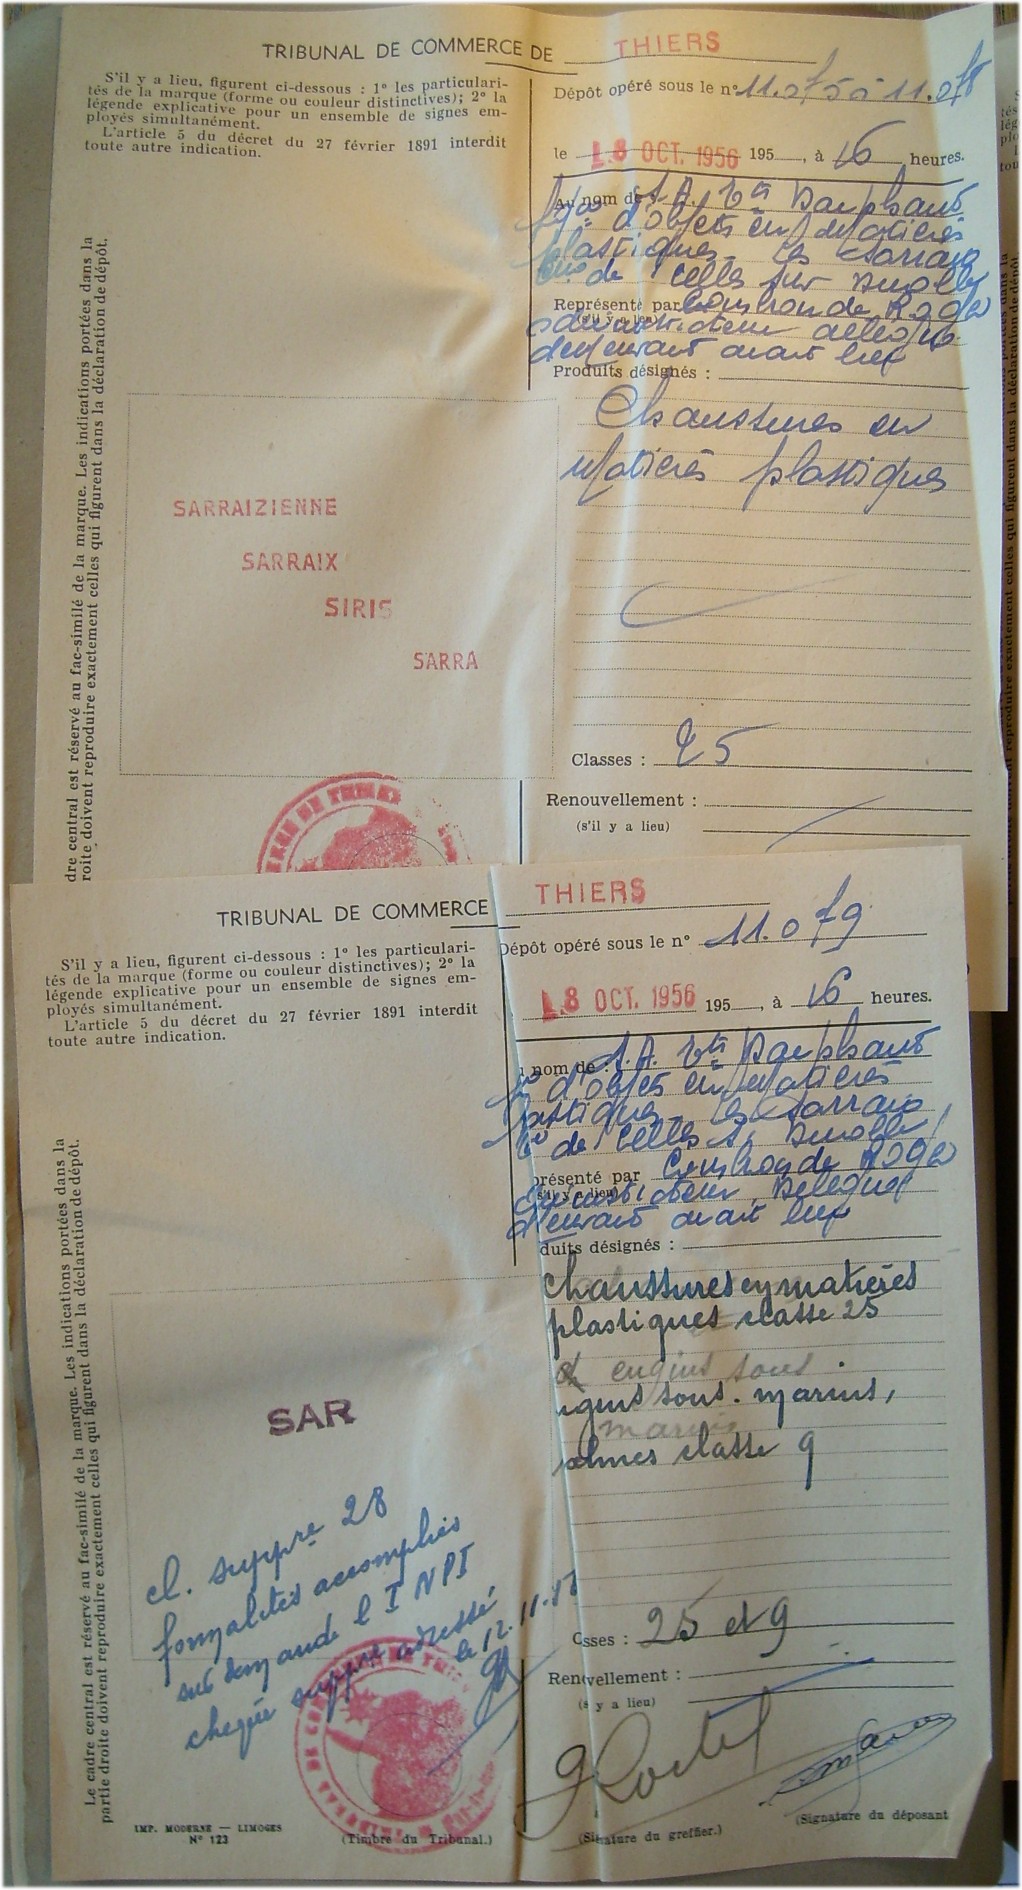 TRIBUNAL DE COMMERCE DE THIERS
S'il y a lieu, figurent ci-dessous : 1º les particulari-
tés de la marque (forme ou couleur distinctives); 2º la
légende explicative pour un ensemble de signes em-
ployés simultanément.
L'article 5 du décret du 27 février 1891 interdit
toute autre indication.
Dépôt opéré sous le nº 11.075 à 11.078
le 18 OCT. 1956 195 , à 16 heures.
Au nom de S.A. Ets Dauphant
d'objets en matières
plastiques Les Sarraix
de Celles sur Durolle
Représenté par Combronde Roger
(s'il y a lieu)
demeurant audit lieu
Produits désignés :
Chaussures en
matières plastiques
dre central est réservé au fac-similé de la marque. Les indications portées dans la
roite doivent reproduire exactement celles qui figurent dans la déclaration de dépôt.
SARRAIZIENNE
SARRAIX
SIRIS
SARRA
Classes : 25
Renouvellement :
(s'il y a lieu)
TRIBUNAL DE COMMERCE THIERS
S'il y a lieu, figurent ci-dessous : 1º les particulari-
tés de la marque (forme ou couleur distinctives); 2º la
légende explicative pour un ensemble de signes em-
ployés simultanément.
L'article 5 du décret du 27 février 1891 interdit
toute autre indication.
Dépôt opéré sous le nº 11.079
18 OCT. 1956 195 , à 16 heures.
nom de : S.A. Ets Dauphant
d'objets en matières
plastiques Les Sarraix
de Celles s/ Durolle
présenté par Combronde Roger
(s'il y a lieu)
duits désignés :
chaussures en matières
plastiques classe 25
& engins sous.
igins sous. marins,
marins
classe 9
Le cadre central est réservé au fac-similé de la marque. Les indications portées dans la
partie droite doivent reproduire exactement celles qui figurent dans la déclaration de dépôt.
SAR
cl. suppre 28
formalités accomplies
sur demande l INPI
chèque suppre adressé
le 12-11-56
sses : 25 et 9
Renouvellement :
(s'il y a lieu)
IMP. MODERNE — LIMOGES
Nº 123
(Timbre du Tribunal.)
(Signature du greffier.)
(Signature du déposant